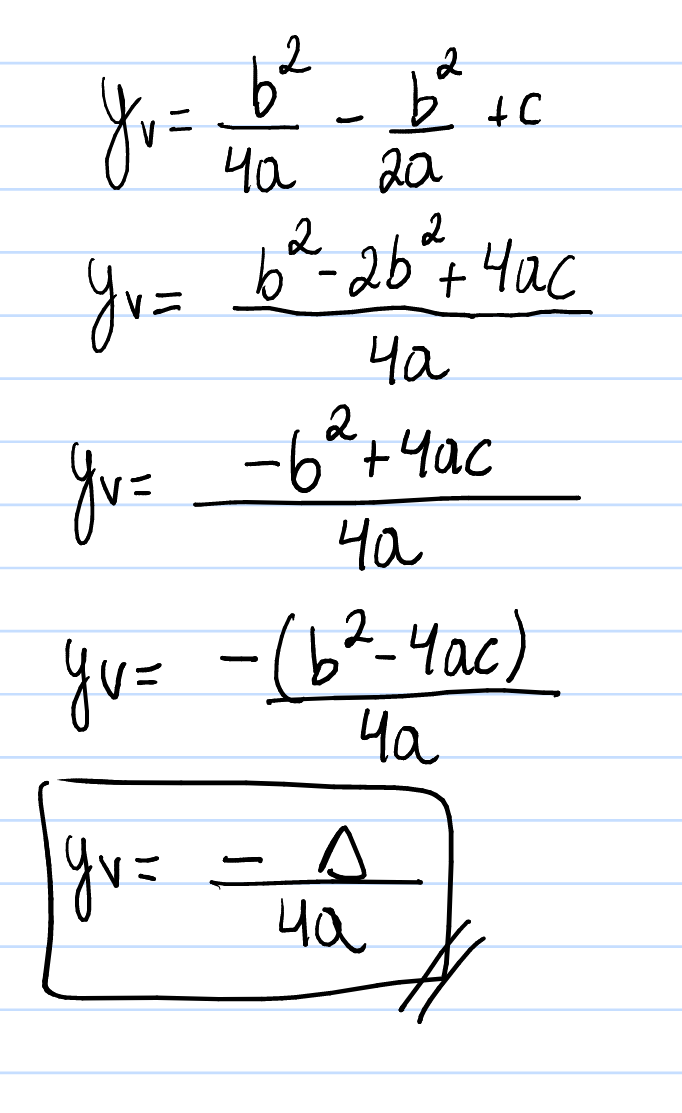 y_v = b²/4a - b²/2a + c
y_v = (b² - 2b² + 4ac)/4a
y_v = (-b² + 4ac)/4a
y_v = -(b² - 4ac)/4a
y_v = -Δ/4a